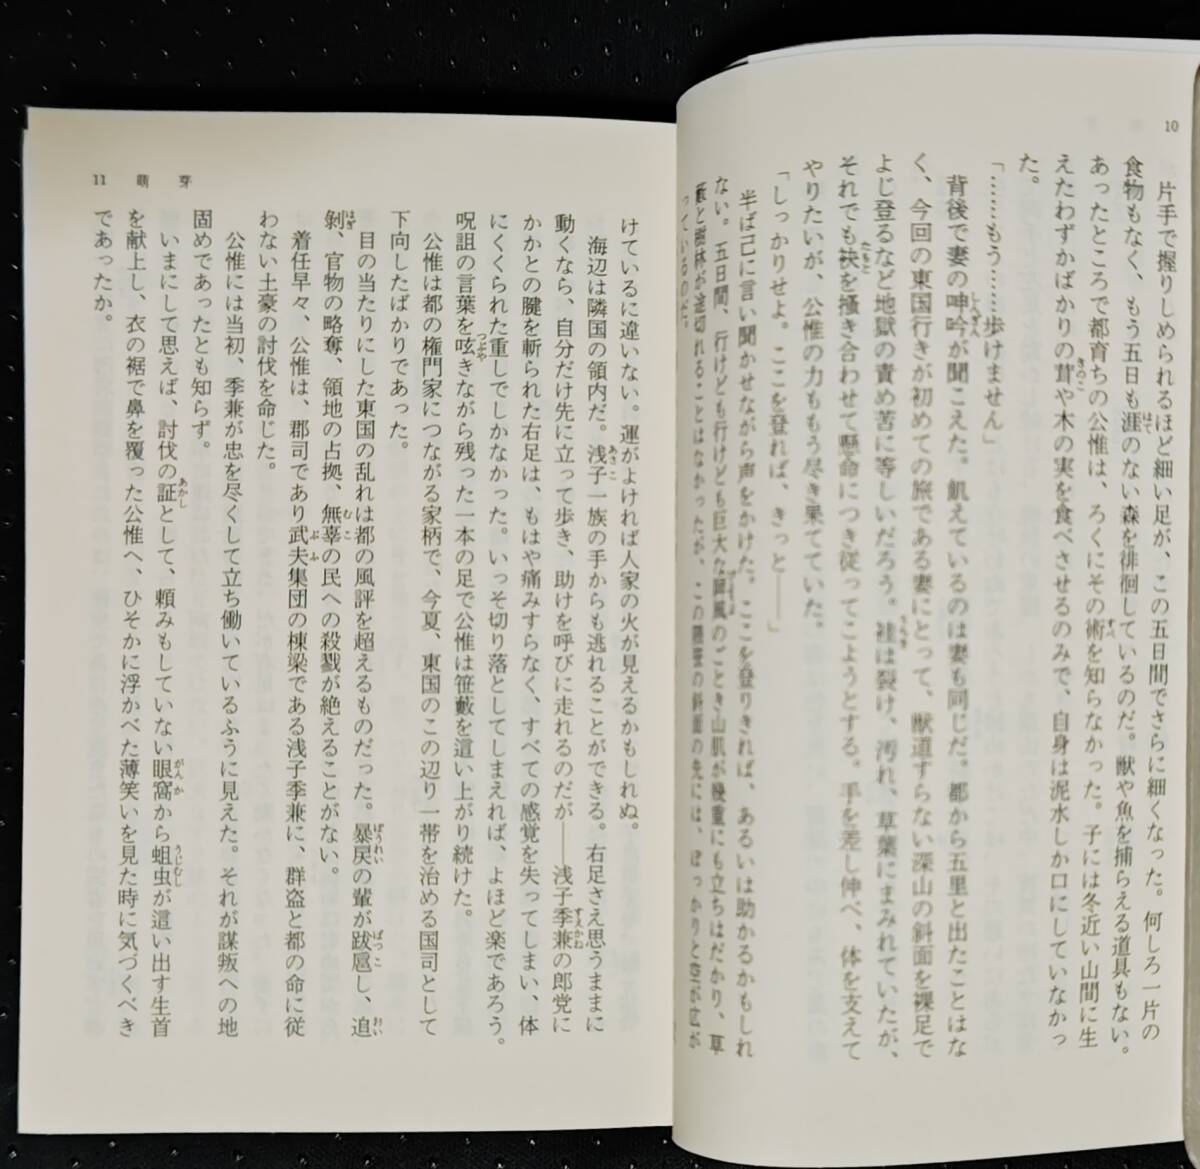 10
片手で握りしめられるほど細い足が、この五日間でさらに細くなった。何しろ一片の
食物もなく、もう五日も涯のない森を徘徊しているのだ。獣や魚を捕らえる道具もない。
あったところで都育ちの公惟は、ろくにその術を知らなかった。子には冬近い山間に生
えたわずかばかりの茸や木の実を食べさせるのみで、自身は泥水しか口にしていなかっ
た。
「……もう……歩けません」
背後で妻の呻吟が聞こえた。飢えているのは妻も同じだ。都から五里と出たことはな
く、今回の東国行きが初めての旅である妻にとって、獣道すらない深山の斜面を裸足で
よじ登るなど地獄の責め苦に等しいだろう。袿は裂け、汚れ、草葉にまみれていたが、
それでも袂を掻き合わせて懸命につき従ってこようとする。手を差し伸べ、体を支えて
やりたいが、公惟の力ももう尽き果てていた。
「しっかりせよ。ここを登れば、きっと――」
半ば己に言い聞かせながら声をかけた。ここを登りきれば、あるいは助かるかもしれ
ない。五日間、行けども行けども巨大な屏風のごとき山肌が幾重にも立ちはだかり、草
藪と樹林が途切れることはなかったが、この隈笹の斜面の先には、ぽっかりと空が広が
っているのだ。
11 萌芽
けているに違いない。運がよければ人家の火が見えるかもしれぬ。
海辺は隣国の領内だ。浅子一族の手からも逃れることができる。右足さえ思うままに
動くなら、自分だけ先に立って歩き、助けを呼びに走れるのだが――浅子季兼の郎党に
かかとの腱を斬られた右足は、もはや痛みすらなく、すべての感覚を失ってしまい、体
にくくられた重しでしかなかった。いっそ切り落としてしまえれば、よほど楽であろう。
呪詛の言葉を呟きながら残った一本の足で公惟は笹藪を這い上がり続けた。
公惟は都の権門家につながる家柄で、今夏、東国のこの辺り一帯を治める国司として
下向したばかりであった。
目の当たりにした東国の乱れは都の風評を超えるものだった。暴戻の輩が跋扈し、追
剝、官物の略奪、領地の占拠、無辜の民への殺戮が絶えることがない。
着任早々、公惟は、郡司であり武夫集団の棟梁である浅子季兼に、群盗と都の命に従
わない土豪の討伐を命じた。
公惟には当初、季兼が忠を尽くして立ち働いているふうに見えた。それが謀叛への地
固めであったとも知らず。
いまにして思えば、討伐の証として、頼みもしていない眼窩から蛆虫が這い出す生首
を献上し、衣の裾で鼻を覆った公惟へ、ひそかに浮かべた薄笑いを見た時に気づくべき
であったか。